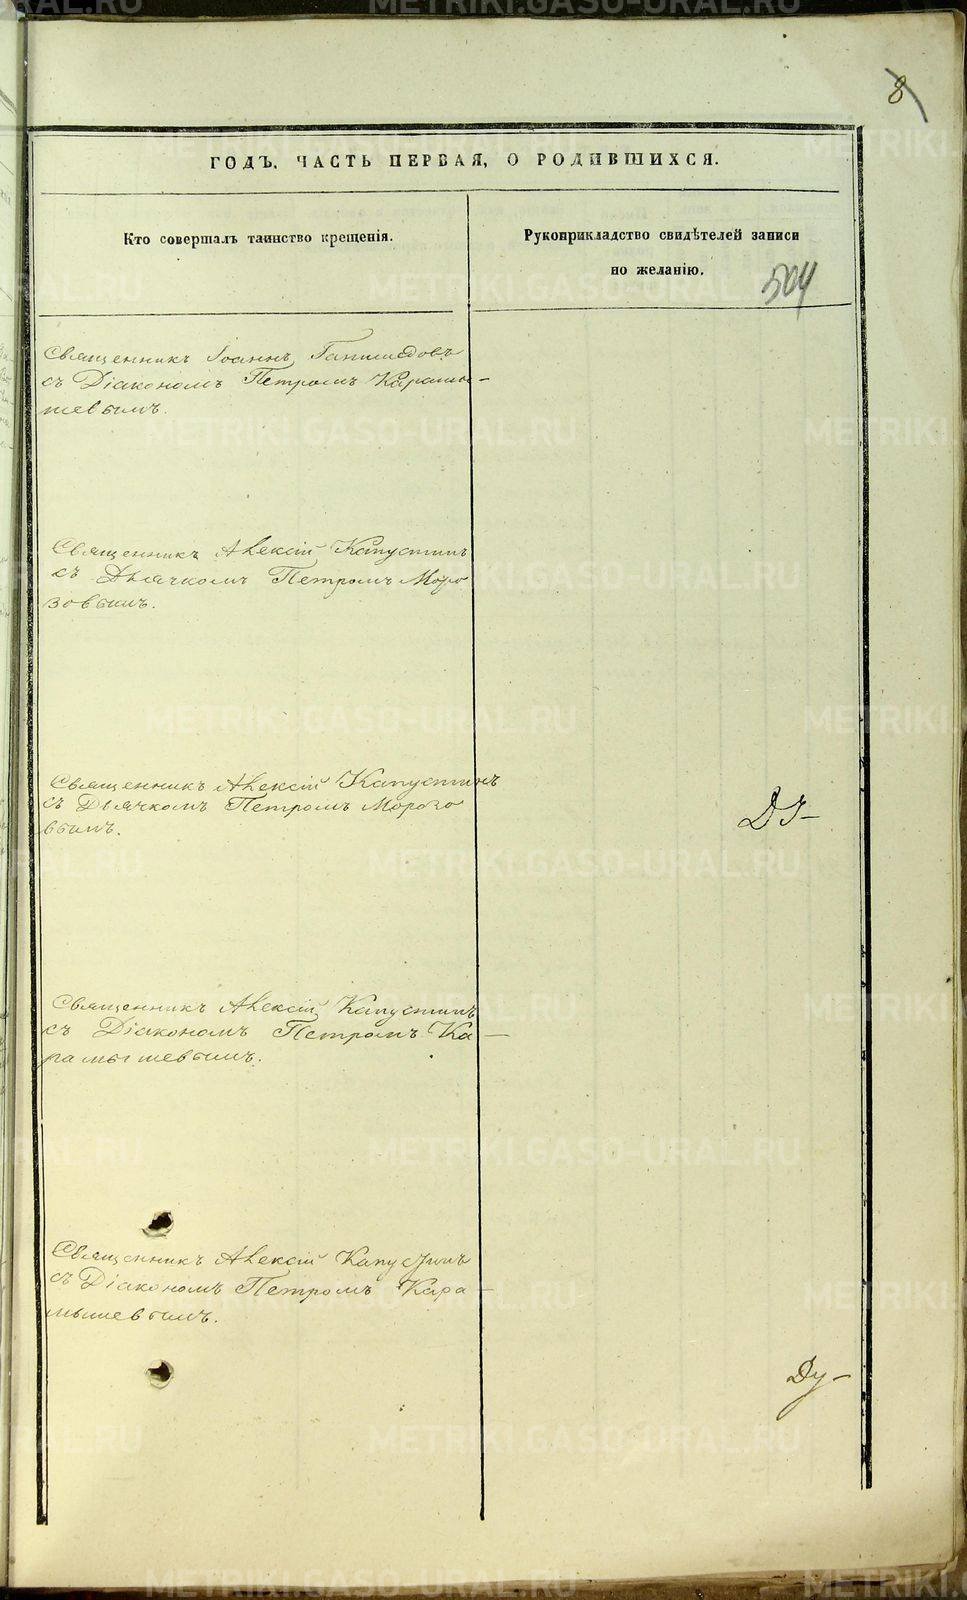 8
ГОДЪ. ЧАСТЬ ПЕРВАЯ, О РОДИВШИХСЯ.
Кто совершалъ таинство крещенія.
Рукоприкладство свидѣтелей записи
по желанію.
504
Священникъ Іоаннъ
съ Діакономъ Петромъ Карамы-
шевымъ.
Священникъ Алексій Капустинъ
съ Дьячкомъ Петромъ Моро
зовымъ.
Священникъ Алексій Капустинъ
съ Дьячкомъ Петромъ Морозо
вымъ.
Священникъ Алексій Капустинъ
съ Діакономъ Петромъ Ка-
рамышевымъ.
Священникъ Алексій Капустинъ
съ Діакономъ Петромъ Кара-
мышевымъ.
METRIKI.GASO-URAL.RU